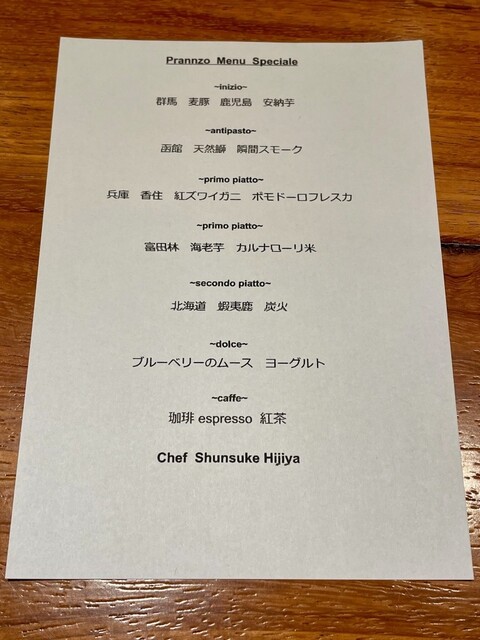 Prannzo Menu Speciale
~inizio~
群馬 麦豚 鹿児島 安納芋
~antipasto~
函館 天然鰤 瞬間スモーク
~primo piatto~
兵庫 香住 紅ズワイガニ ポモドーロフレスカ
~primo piatto~
富田林 海老芋 カルナローリ米
~secondo piatto~
北海道 蝦夷鹿 炭火
~dolce~
ブルーベリーのムース ヨーグルト
~caffe~
珈琲 espresso 紅茶
Chef Shunsuke Hijiya